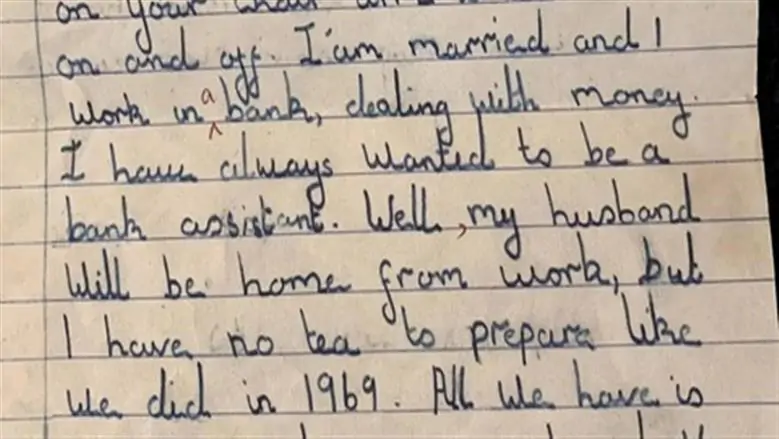 on your
on and off. I'am married and I
work in a bank, dealing with money.
I have always wanted to be a
bank assistant. Well, my husband
will be home from work, but
I have no tea to prepare like
we did in 1969. All we have is